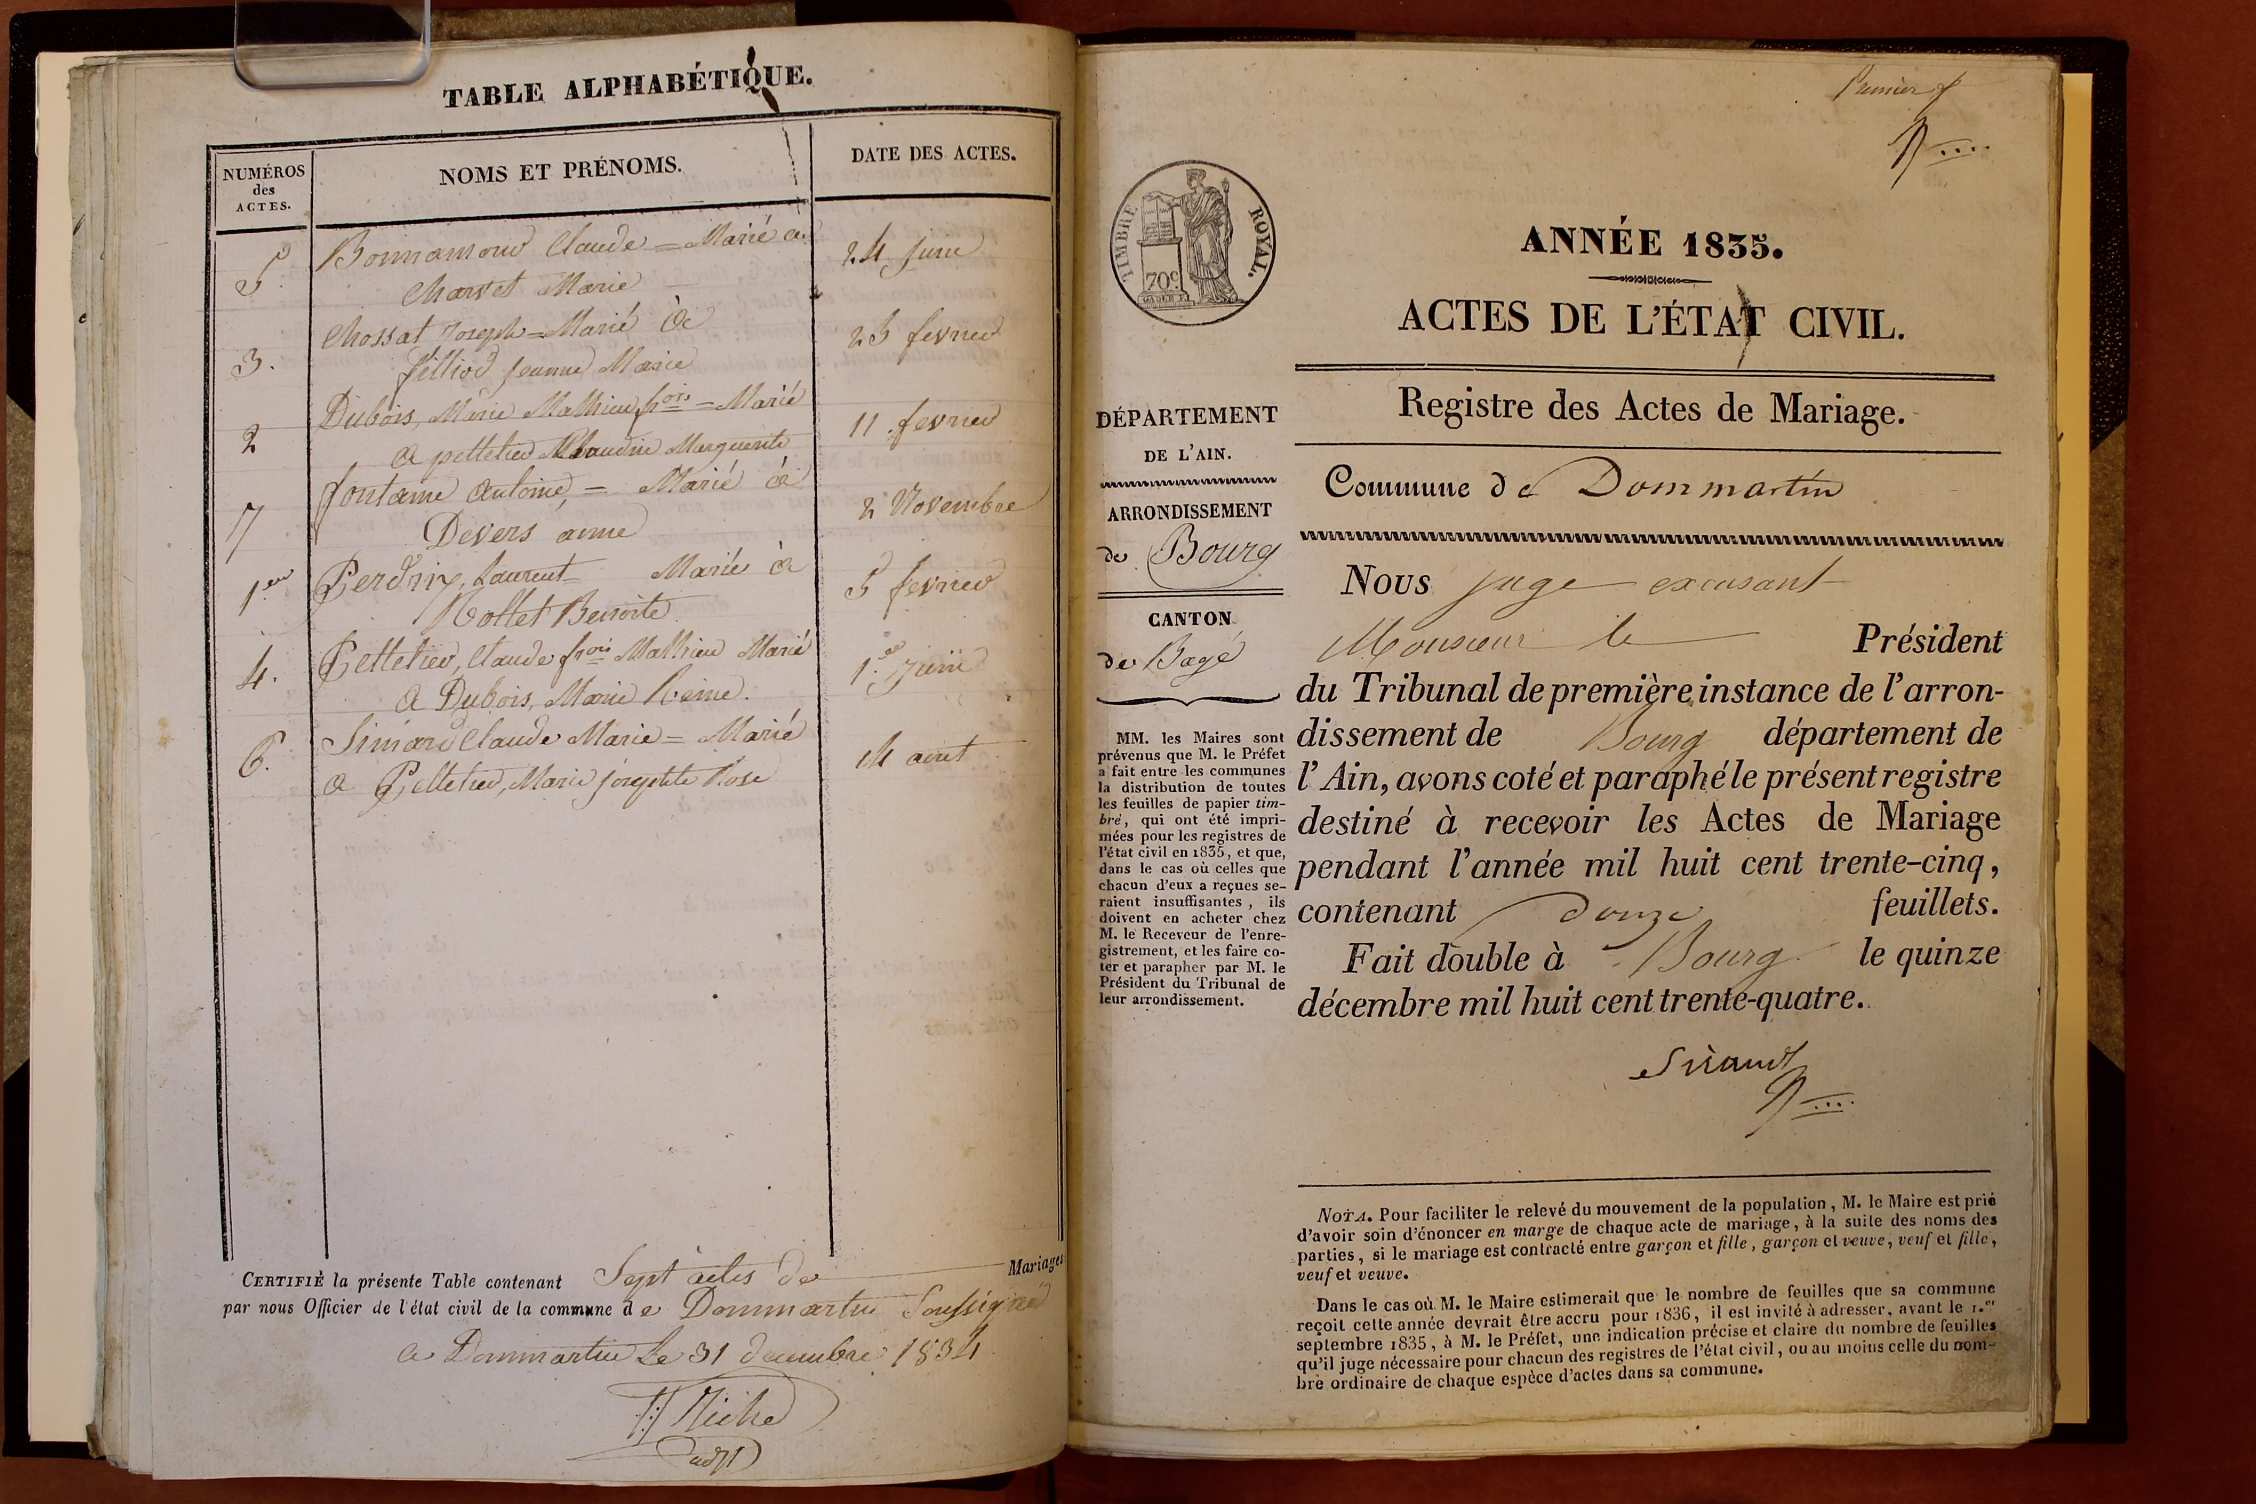 TABLE ALPHABÉTIQUE.
NUMÉROS
des
ACTES.
NOMS ET PRÉNOMS.
DATE DES ACTES.
5
Bonnamour Claude = Marié a
24 juin
Charvet Marie
3.
Chossat Joseph = Marié à
23 fevrier
Jeanne Marie
2
Dubois, Marie Mathieu frois = Marié
11 fevrier
a pelletier Claudine Marguerite
7
fontaine antoine, = Marié à
2 Novembre
Devers anne
1er
Perdrix, Laurent = Marié à
5 fevrier
Rollet Benoite
4.
Pelletier, Claude frois Mathieu Marié
1er juin
a Dubois, Marie Reine.
6.
Simard Claude Marie = Marié
14 aout
a Pelletier, Marie josephte Rose
CERTIFIÉ la présente Table contenant Sept actes de Mariages
par nous Officier de l'état civil de la commune de Dommartin Soussigné
a Dommartin Le 31 decembre 1834
Premier f
TIMBRE ROYAL.
70c
ANNÉE 1835.
ACTES DE L'ÉTAT CIVIL.
Registre des Actes de Mariage.
DÉPARTEMENT
DE L'AIN.
ARRONDISSEMENT
de Bourg
CANTON
de Bagé
MM. les Maires sont
prévenus que M. le Préfet
a fait entre les communes
la distribution de toutes
les feuilles de papier tim-
bré, qui ont été impri-
mées pour les registres de
l'état civil en 1835, et que,
dans le cas où celles que
chacun d'eux a reçues se-
raient insuffisantes, ils
doivent en acheter chez
M. le Receveur de l'enre-
gistrement, et les faire co-
ter et parapher par M. le
Président du Tribunal de
leur arrondissement.
Commune de Dommartin
Nous juge excusant
Monsieur le Président
du Tribunal de première instance de l'arron-
dissement de Bourg département de
l'Ain, avons coté et paraphé le présent registre
destiné à recevoir les Actes de Mariage
pendant l'année mil huit cent trente-cinq,
contenant douze feuillets.
Fait double à Bourg le quinze
décembre mil huit cent trente-quatre.
Sirand
NOTA. Pour faciliter le relevé du mouvement de la population, M. le Maire est prié
d'avoir soin d'énoncer en marge de chaque acte de mariage, à la suite des noms des
parties, si le mariage est contracté entre garçon et fille, garçon et veuve, veuf et fille,
veuf et veuve.
Dans le cas où M. le Maire estimerait que le nombre de feuilles que sa commune
reçoit cette année devrait être accru pour 1836, il est invité à adresser, avant le 1.er
septembre 1835, à M. le Préfet, une indication précise et claire du nombre de feuilles
qu'il juge nécessaire pour chacun des registres de l'état civil, ou au moins celle du nom-
bre ordinaire de chaque espèce d'actes dans sa commune.